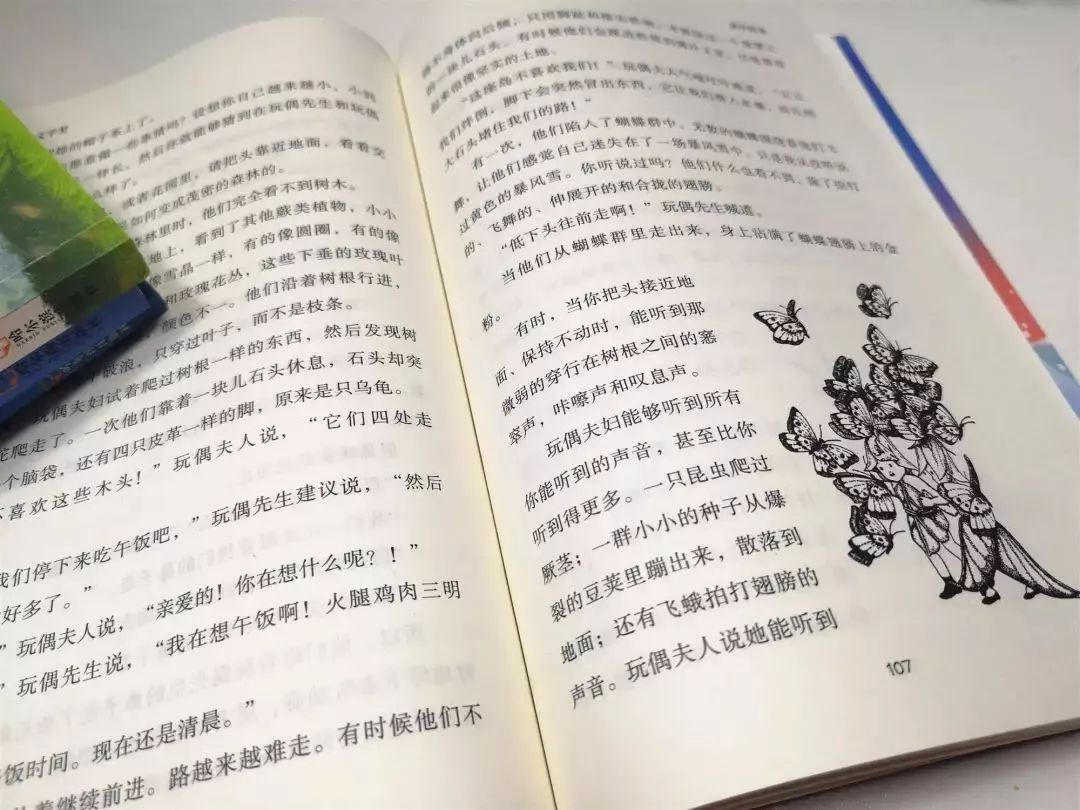 越来越小，小到
然后你就能够猜到在玩偶先生和玩偶
或者花园里，请把头靠近地面，看看交
是如何变成茂密的森林的。
森林里时，他们完全看不到树木。
地上，看到了其他蕨类植物，小小
像雪晶一样，有的像圆圈，有的像
和玫瑰花丛，这些下垂的玫瑰叶
颜色不一。他们沿着树根行进，
破浪，只穿过叶子，而不是枝条。
玩偶夫妇试着爬过树根一样的东西，然后发现树
爬走了。一次他们靠着一块儿石头休息，石头却突
个脑袋，还有四只皮革一样的脚，原来是只乌龟。
喜欢这些木头！”玩偶夫人说，“它们四处走
我们停下来吃午饭吧，”玩偶先生建议说，“然后
好多了。”
玩偶夫人说，“亲爱的！你在想什么呢？！”
”玩偶先生说，“我在想午饭啊！火腿鸡肉三明
饭时间。现在还是清晨。”
着继续前进。路越来越难走。有时候他们不
的一块儿石头。有时候他们会
起来很像坚实的土地。
“这座岛不喜欢我们！”玩偶夫人气
我们绊倒，脚下会突然冒出东西，它让我们
大石头堵住我们的路！”
有一次，他们陷入了蝴蝶群中。无数的蝴蝶围绕着他们飞
舞，让他们感觉自己迷失在了一场暴风雪中，只是
过黄色的暴风雪。你听说过吗？他们什么也看不到，除了拍打
的、飞舞的、伸展开的和合拢的翅膀。
“低下头往前走啊！”玩偶先生喊道。
当他们从蝴蝶群里走出来，身上沾满了蝴蝶翅膀上的金
粉。
有时，当你把头接近地
面、保持不动时，能听到那
微弱的穿行在树根之间的窸
窣声，咔嚓声和叹息声。
玩偶夫妇能够听到所有
你能听到的声音，甚至比你
听到得更多。一只昆虫爬过
蕨茎；一群小小的种子从爆
裂的豆荚里蹦出来，散落到
地面；还有飞蛾拍打翅膀的
声音。玩偶夫人说她能听到
107